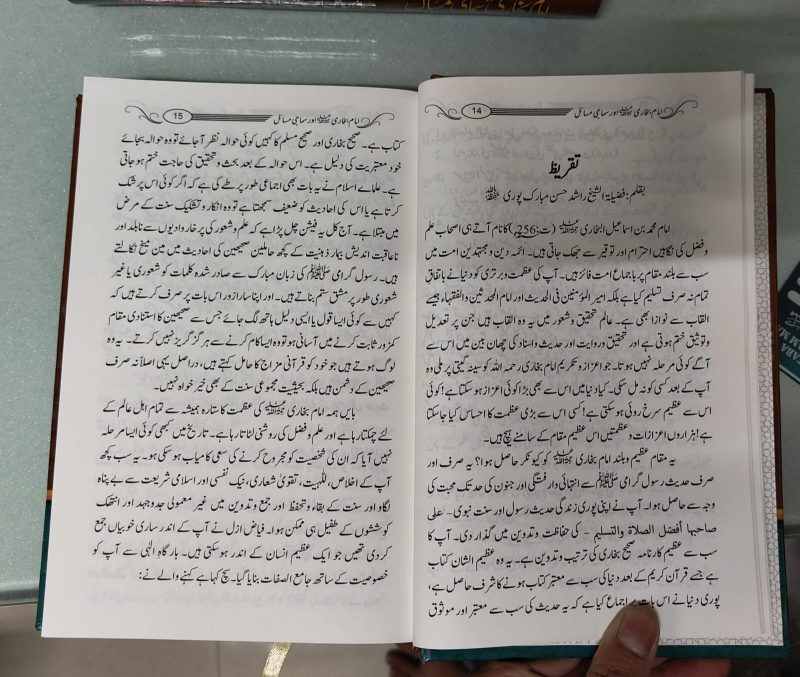 14 امام بخاری رحمۃ اللہ علیہ اور سماجی مسائل
تقریظ
بقلم: فضیلۃ الشیخ راشد حسن مبارک پوری حفظہ اللہ
امام محمد بن اسماعیل البخاری رحمۃ اللہ علیہ (ت:256ھ) کا نام آتے ہی اصحاب علم
و فضل کی نگاہیں احترام اور توقیر سے جھک جاتی ہیں۔ ائمہ دین و مجتہدین امت میں
سب سے بلند مقام پر باجماع امت فائز ہیں۔ آپ کی عظمت و برتری کو دنیا نے باتفاق
تمام نہ صرف تسلیم کیا ہے بلکہ امیر المؤمنین فی الحدیث اور امام المحدثین والفقہاء جیسے
القاب سے نوازا بھی ہے۔ عالم تحقیق و شعور میں یہ وہ القاب ہیں جن پر تعدیل
و توثیق ختم ہوتی ہے اور تحقیق و روایت اور حدیث و اسناد کی چھان بین میں اس سے
آگے کوئی مرحلہ نہیں ہوتا۔ جو اعزاز و تکریم امام بخاری رحمہ اللہ کو سینہ گیتی پر ملی وہ
آپ کے بعد کسی کو نہ مل سکی۔ کیا دنیا میں اس سے بھی بڑا کوئی اعزاز ہو سکتا ہے! کوئی
اس سے عظیم سرخ روئی ہو سکتی ہے! کسی اس سے بڑی عظمت کا احساس کیا جاسکتا
ہے! ہزاروں اعزازات و عظمتیں اس عظیم مقام کے سامنے ہیچ ہیں۔
یہ مقام عظیم و بلند امام بخاری رحمۃ اللہ علیہ کو کیونکر حاصل ہوا؟ یہ صرف اور
صرف حدیث رسول گرامی ﷺ سے انتہائی وارفتگی اور جنون کی حد تک محبت کی
وجہ سے حاصل ہوا۔ آپ نے اپنی پوری زندگی حدیث رسول اور سنت نبوی - علی
صاحبها أفضل الصلاة والتسليم - کی حفاظت و تدوین میں گذار دی۔ آپ کا
سب سے عظیم کارنامہ صحیح بخاری کی ترتیب و تدوین ہے۔ یہ وہ عظیم الشان کتاب
ہے جسے قرآن کریم کے بعد دنیا کی سب سے معتبر کتاب ہونے کا شرف حاصل ہے،
پوری دنیا نے اس بات پر اجماع کیا ہے کہ یہ حدیث کی سب سے معتبر اور موثوق
15 امام بخاری رحمۃ اللہ علیہ اور سماجی مسائل
کتاب ہے۔ صحیح بخاری اور صحیح مسلم کا کہیں کوئی حوالہ نظر آجائے تو وہ حوالہ بجائے
خود معتبریت کی دلیل ہے۔ اس حوالہ کے بعد بحث و تحقیق کی حاجت ختم ہو جاتی
ہے۔ علمائے اسلام نے یہ بات بھی اجماعی طور پر طے کی ہے کہ اگر کوئی اس پر شک
کرتا ہے یا اس کی احادیث کو ضعیف سمجھتا ہے تو وہ انکار و تشکیک سنت کے مرض
میں مبتلا ہے۔ آج کل یہ فیشن چل پڑا ہے کہ علم و شعور کی پر خار وادیوں سے نابلد اور
ناعاقبت اندیش بیمار ذہنیت کے کچھ حاملین صحیحین کی احادیث میں مین میخ نکالتے
ہیں۔ رسول گرامی ﷺ کی زبان مبارک سے صادر شدہ کلمات کو شعوری یا غیر
شعوری طور پر مشق ستم بناتے ہیں۔ اور اپنا سارا زور اس بات پر صرف کرتے ہیں کہ
کہیں سے کوئی ایسا قول یا ایسی دلیل ہاتھ لگ جائے جس سے صحیحین کا استنادی مقام
کمزور ثابت کرنے میں آسانی ہو تو وہ ایسا کام کرنے سے ہرگز گریز نہیں کرتے۔ یہ وہ
لوگ ہوتے ہیں جو خود کو قرآنی مزاج کا حامل کہتے ہیں، دراصل یہی اصلاً نہ صرف
صحیحین کے دشمن ہیں بلکہ بحیثیت مجموعی سنت کے بھی خیر خواہ نہیں۔
بایں ہمہ امام بخاری رحمۃ اللہ علیہ کی عظمت کا ستارہ ہمیشہ سے تمام اہل عالم کے
لئے چمکتا رہا ہے اور علم و فضل کی روشنی لٹاتا رہا ہے۔ تاریخ میں کبھی کوئی ایسا مرحلہ
نہیں آیا کہ ان کی شخصیت کو مجروح کرنے کی سعی کامیاب ہو سکی ہو۔ یہ سب کچھ
آپ کے اخلاص، للہیت، تقویٰ شعاری، نیک نفسی اور اسلامی شریعت سے بے پناہ
لگاؤ اور سنت کے بقاء و تحفظ اور جمع و تدوین میں غیر معمولی جدوجہد اور انتھک
کوششوں کے طفیل ہی ممکن ہوا۔ فیاض ازل نے آپ کے اندر ساری خوبیاں جمع
کر دی تھیں جو ایک عظیم انسان کے اندر ہو سکتی ہیں۔ بارگاہ الٰہی سے آپ کو
خصوصیت کے ساتھ جامع الصفات بنایا گیا۔ سچ کہا ہے کہنے والے نے: